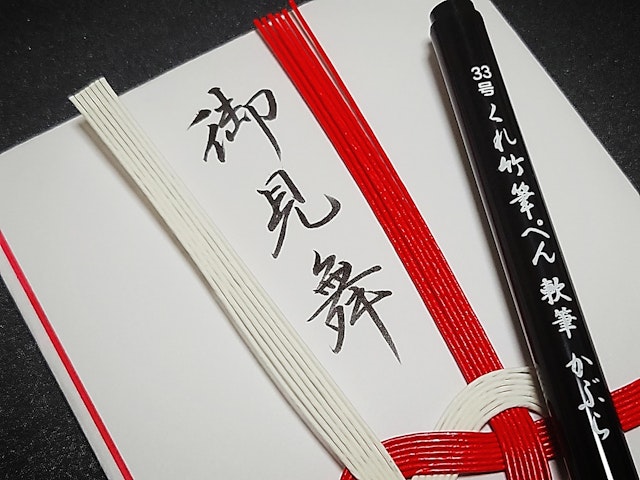 御見舞
33号 くれ竹筆ぺん 軟筆 かぶら